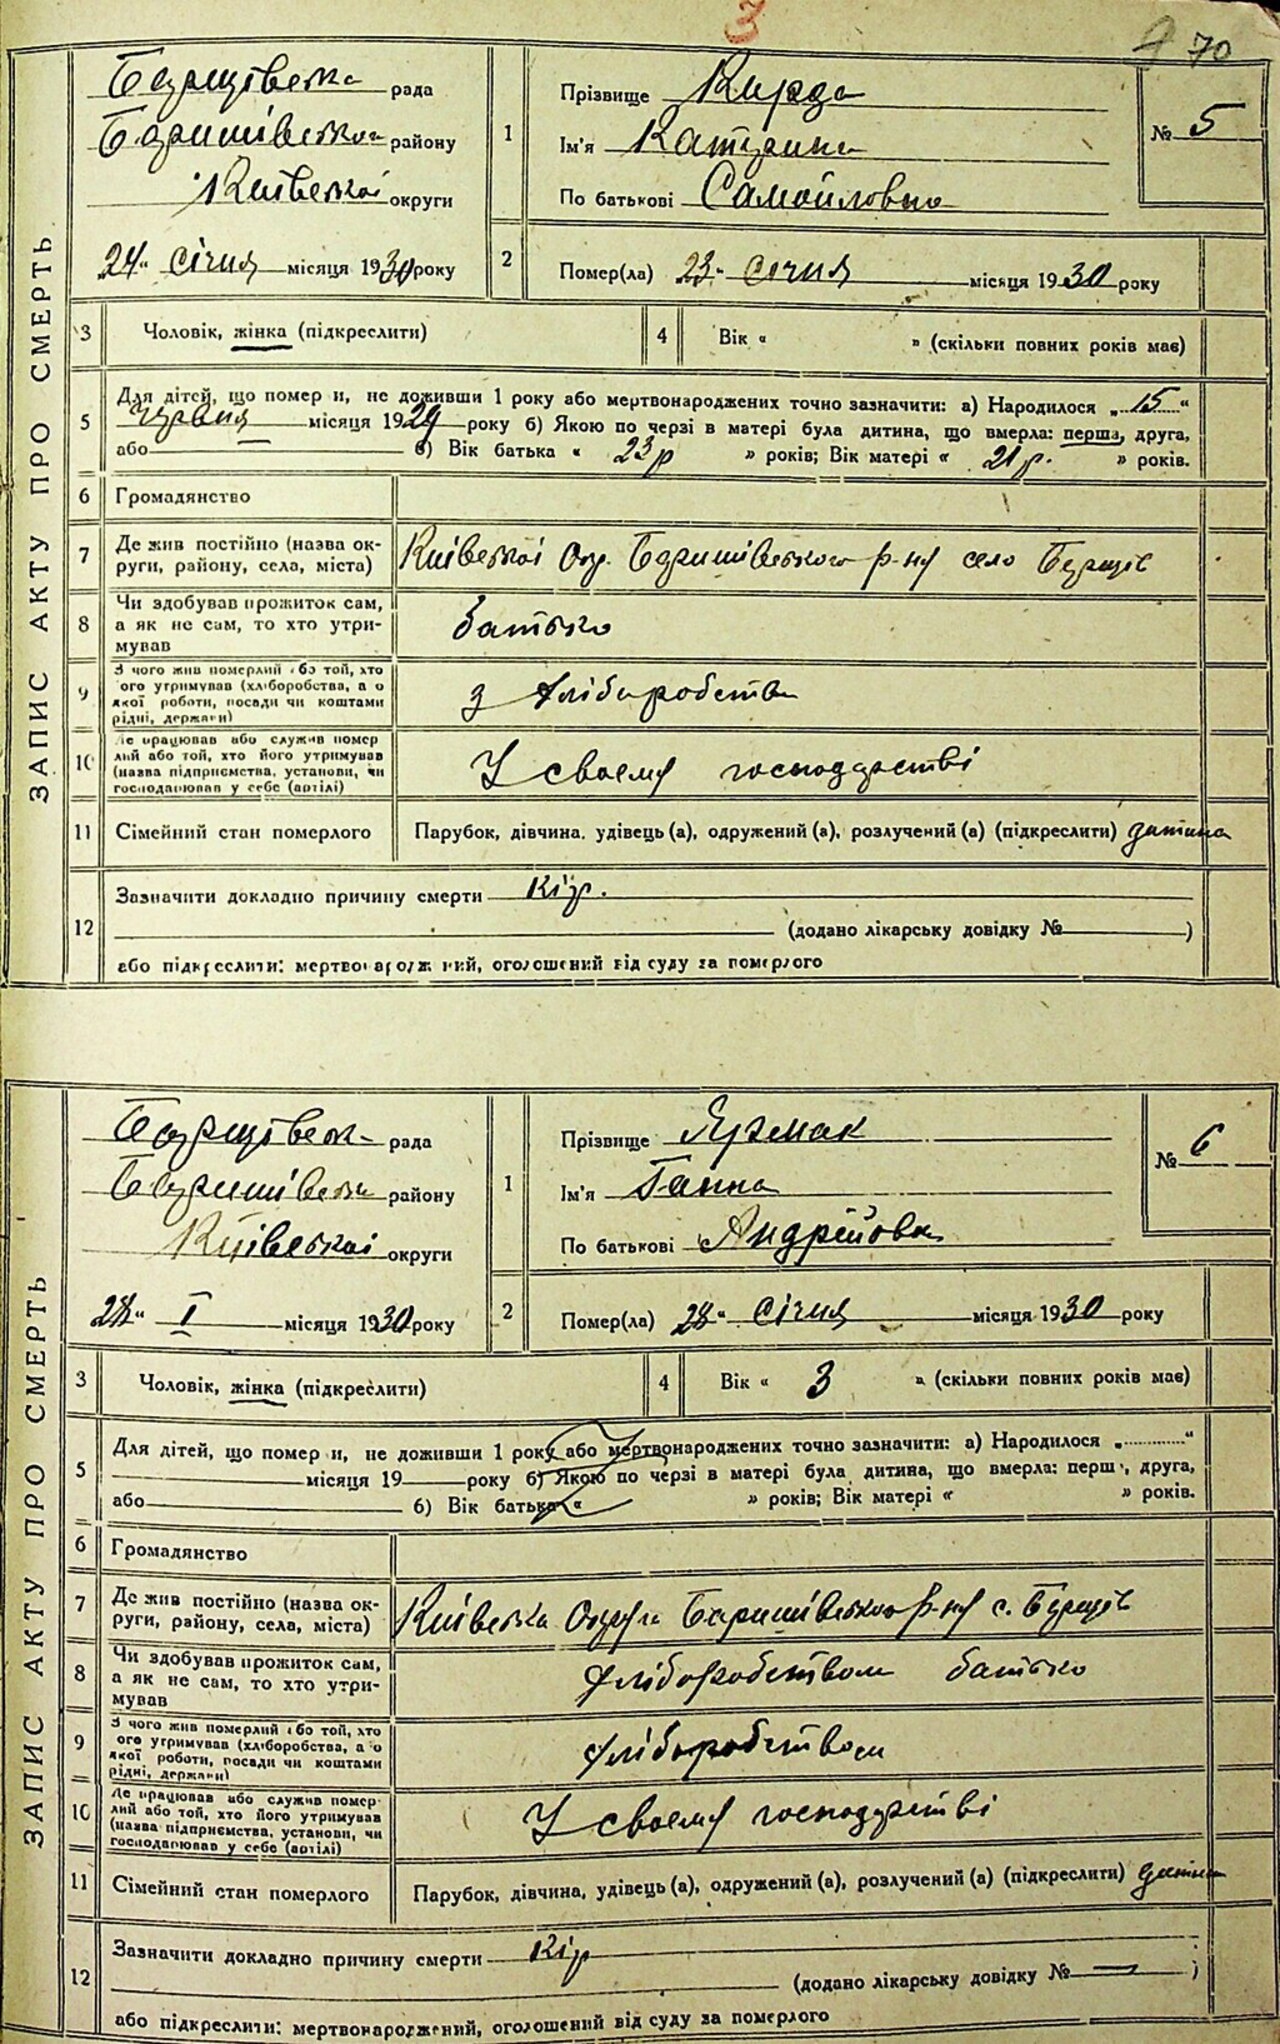 3
70
ЗАПИС АКТУ ПРО СМЕРТЬ
Борщівська рада
Баришівського району
Київської округи
24 " січня місяця 1930 року
1
Прізвище Кирда
Ім'я Катерина
По батькові Самойловна
№ 5
2
Помер(ла) 23 " січня місяця 1930 року
3 Чоловік, жінка (підкреслити)
4 Вік « » (скільки повних років має)
5 Для дітей, що помер и, не доживши 1 року або мертвонароджених точно зазначити: а) Народилося „ 15 "
червня місяця 1929 року б) Якою по черзі в матері була дитина, що вмерла: перша, друга,
або в) Вік батька « 23 р » років; Вік матері « 21 р. » років.
6 Громадянство
7 Де жив постійно (назва ок-
руги, району, села, міста)
Київської Окр. Баришівського р-ну село Борщів
8 Чи здобував прожиток сам,
а як не сам, то хто утри-
мував
батько
9 З чого жив померлий або той, хто
його утримував (хліборобства, а о
якої роботи, посади чи коштами
рідні, держави)
з хліборобства
10 Де працював або служив помер
лий або той, хто його утримував
(назва підприємства, установи, чи
господарював у себе (артілі)
У своєму господарстві
11 Сімейний стан померлого
Парубок, дівчина, удівець (а), одружений (а), розлучений (а) (підкреслити) дитина
12 Зазначити докладно причину смерти Кір.
(додано лікарську довідку № )
або підкреслити: мертвонароджений, оголошений від суду за померлого
ЗАПИС АКТУ ПРО СМЕРТЬ
Борщівськ рада
Баришівськ району
Київської округи
28 " I місяця 1930 року
1
Прізвище Ярмак
Ім'я Ганна
По батькові Андрійовн
№ 6
2
Помер(ла) 28 " січня місяця 1930 року
3 Чоловік, жінка (підкреслити)
4 Вік « 3 » (скільки повних років має)
5 Для дітей, що помер и, не доживши 1 року або мертвонароджених точно зазначити: а) Народилося „ "
місяця 19 року б) Якою по черзі в матері була дитина, що вмерла: перш , друга,
або б) Вік батька « » років; Вік матері « » років.
6 Громадянство
7 Де жив постійно (назва ок-
руги, району, села, міста)
Київська Округа Баришівського р-ну с. Борщів
8 Чи здобував прожиток сам,
а як не сам, то хто утри-
мував
хліборобством батько
9 З чого жив померлий або той, хто
його утримував (хліборобства, а о
якої роботи, посади чи коштами
рідні, держави)
хліборобством
10 Де працював або служив помер-
лий або той, хто його утримував
(назва підприємства, установи, чи
господарював у себе (артілі)
У своєму господарстві
11 Сімейний стан померлого
Парубок, дівчина, удівець (а), одружений (а), розлучений (а) (підкреслити) дитина
12 Зазначити докладно причину смерти Кір
(додано лікарську довідку № — )
або підкреслити: мертвонароджений, оголошений від суду за померлого